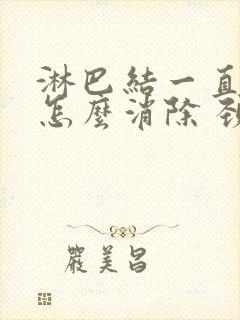 淋巴結一直
怎麼消除
嚴美昌